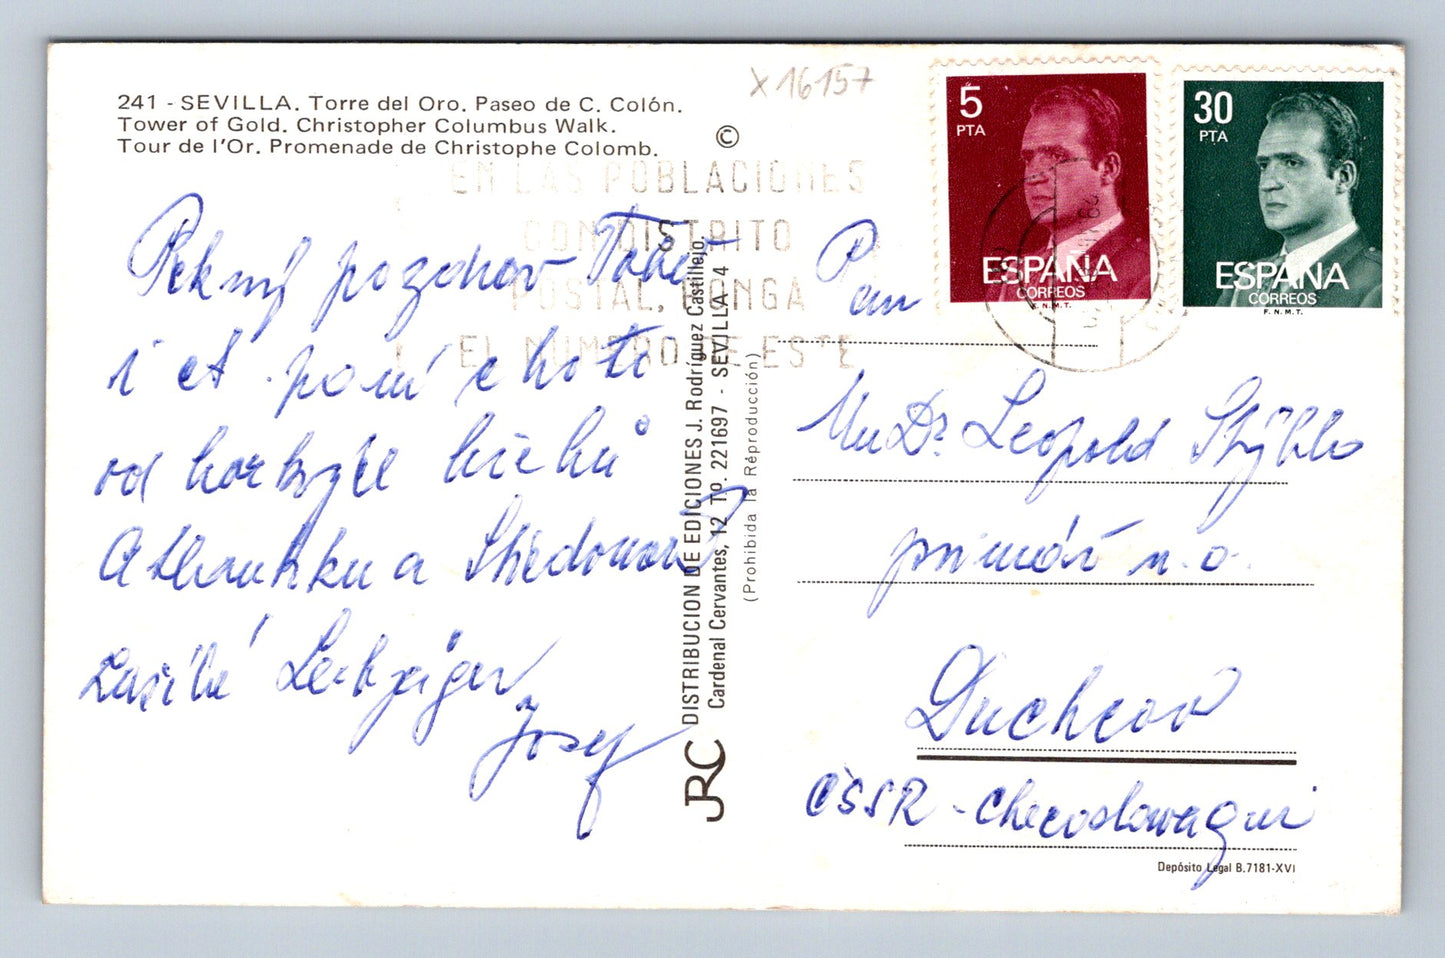 241 - SEVILLA. Torre del Oro. Paseo de C. Colón.
Tower of Gold. Christopher Columbus Walk.
Tour de l'Or. Promenade de Christophe Colomb.
X 16157
©
EN LAS POBLACIONES
CON DISTRITO
POSTAL, PONGA
EL NUMERO DE ESTE
5
PTA
ESPAÑA
CORREOS
F.N.M.T.
30
PTA
ESPAÑA
CORREOS
F.N.M.T.
Pekný pozdrav Tobě
i čt. paní choti
od horkých břehů
Atlantiku a Středomoří
zasílá
Josef
DISTRIBUCION DE EDICIONES J. Rodríguez Castillejo.
Cardenal Cervantes, 12 To. 221697 - SEVILLA-4
(Prohibida la Réproducción)
JRC
Pan
MuDr Leopold Stýblo
primář n.o.
Duchcov
ČSSR - Checoslowaqui
Depósito Legal B.7181-XVI